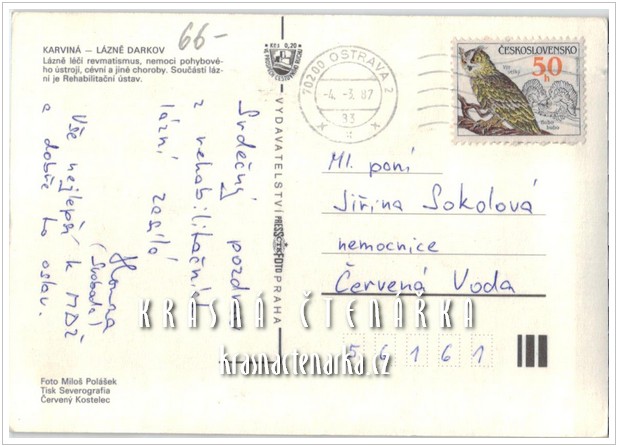 KARVINÁ — LÁZNĚ DARKOV
Lázně léčí revmatismus, nemoci pohybové-
ho ústrojí, cévní a jiné choroby. Součástí láz-
ní je Rehabilitační ústav.
66-
Kčs 0,20
VYDAVATELSTVÍ PRESSFOTO PRAHA
70200 OSTRAVA 2
-4.-3.87
33
ČESKOSLOVENSKO
50h
Výr velký
Bubo bubo
Srdečný pozdrav
z rehabilitačních
lázní zasílá
Honza
(Svoboda)
Vše nejlepší k MDŽ
a dobře to oslav.
Ml. paní
Jiřina Sokolová
nemocnice
Červená Voda
56161
KRASNÁ ČTENÁŘKA
krasnactenarka.cz
Foto Miloš Polášek
Tisk Severografia
Červený Kostelec